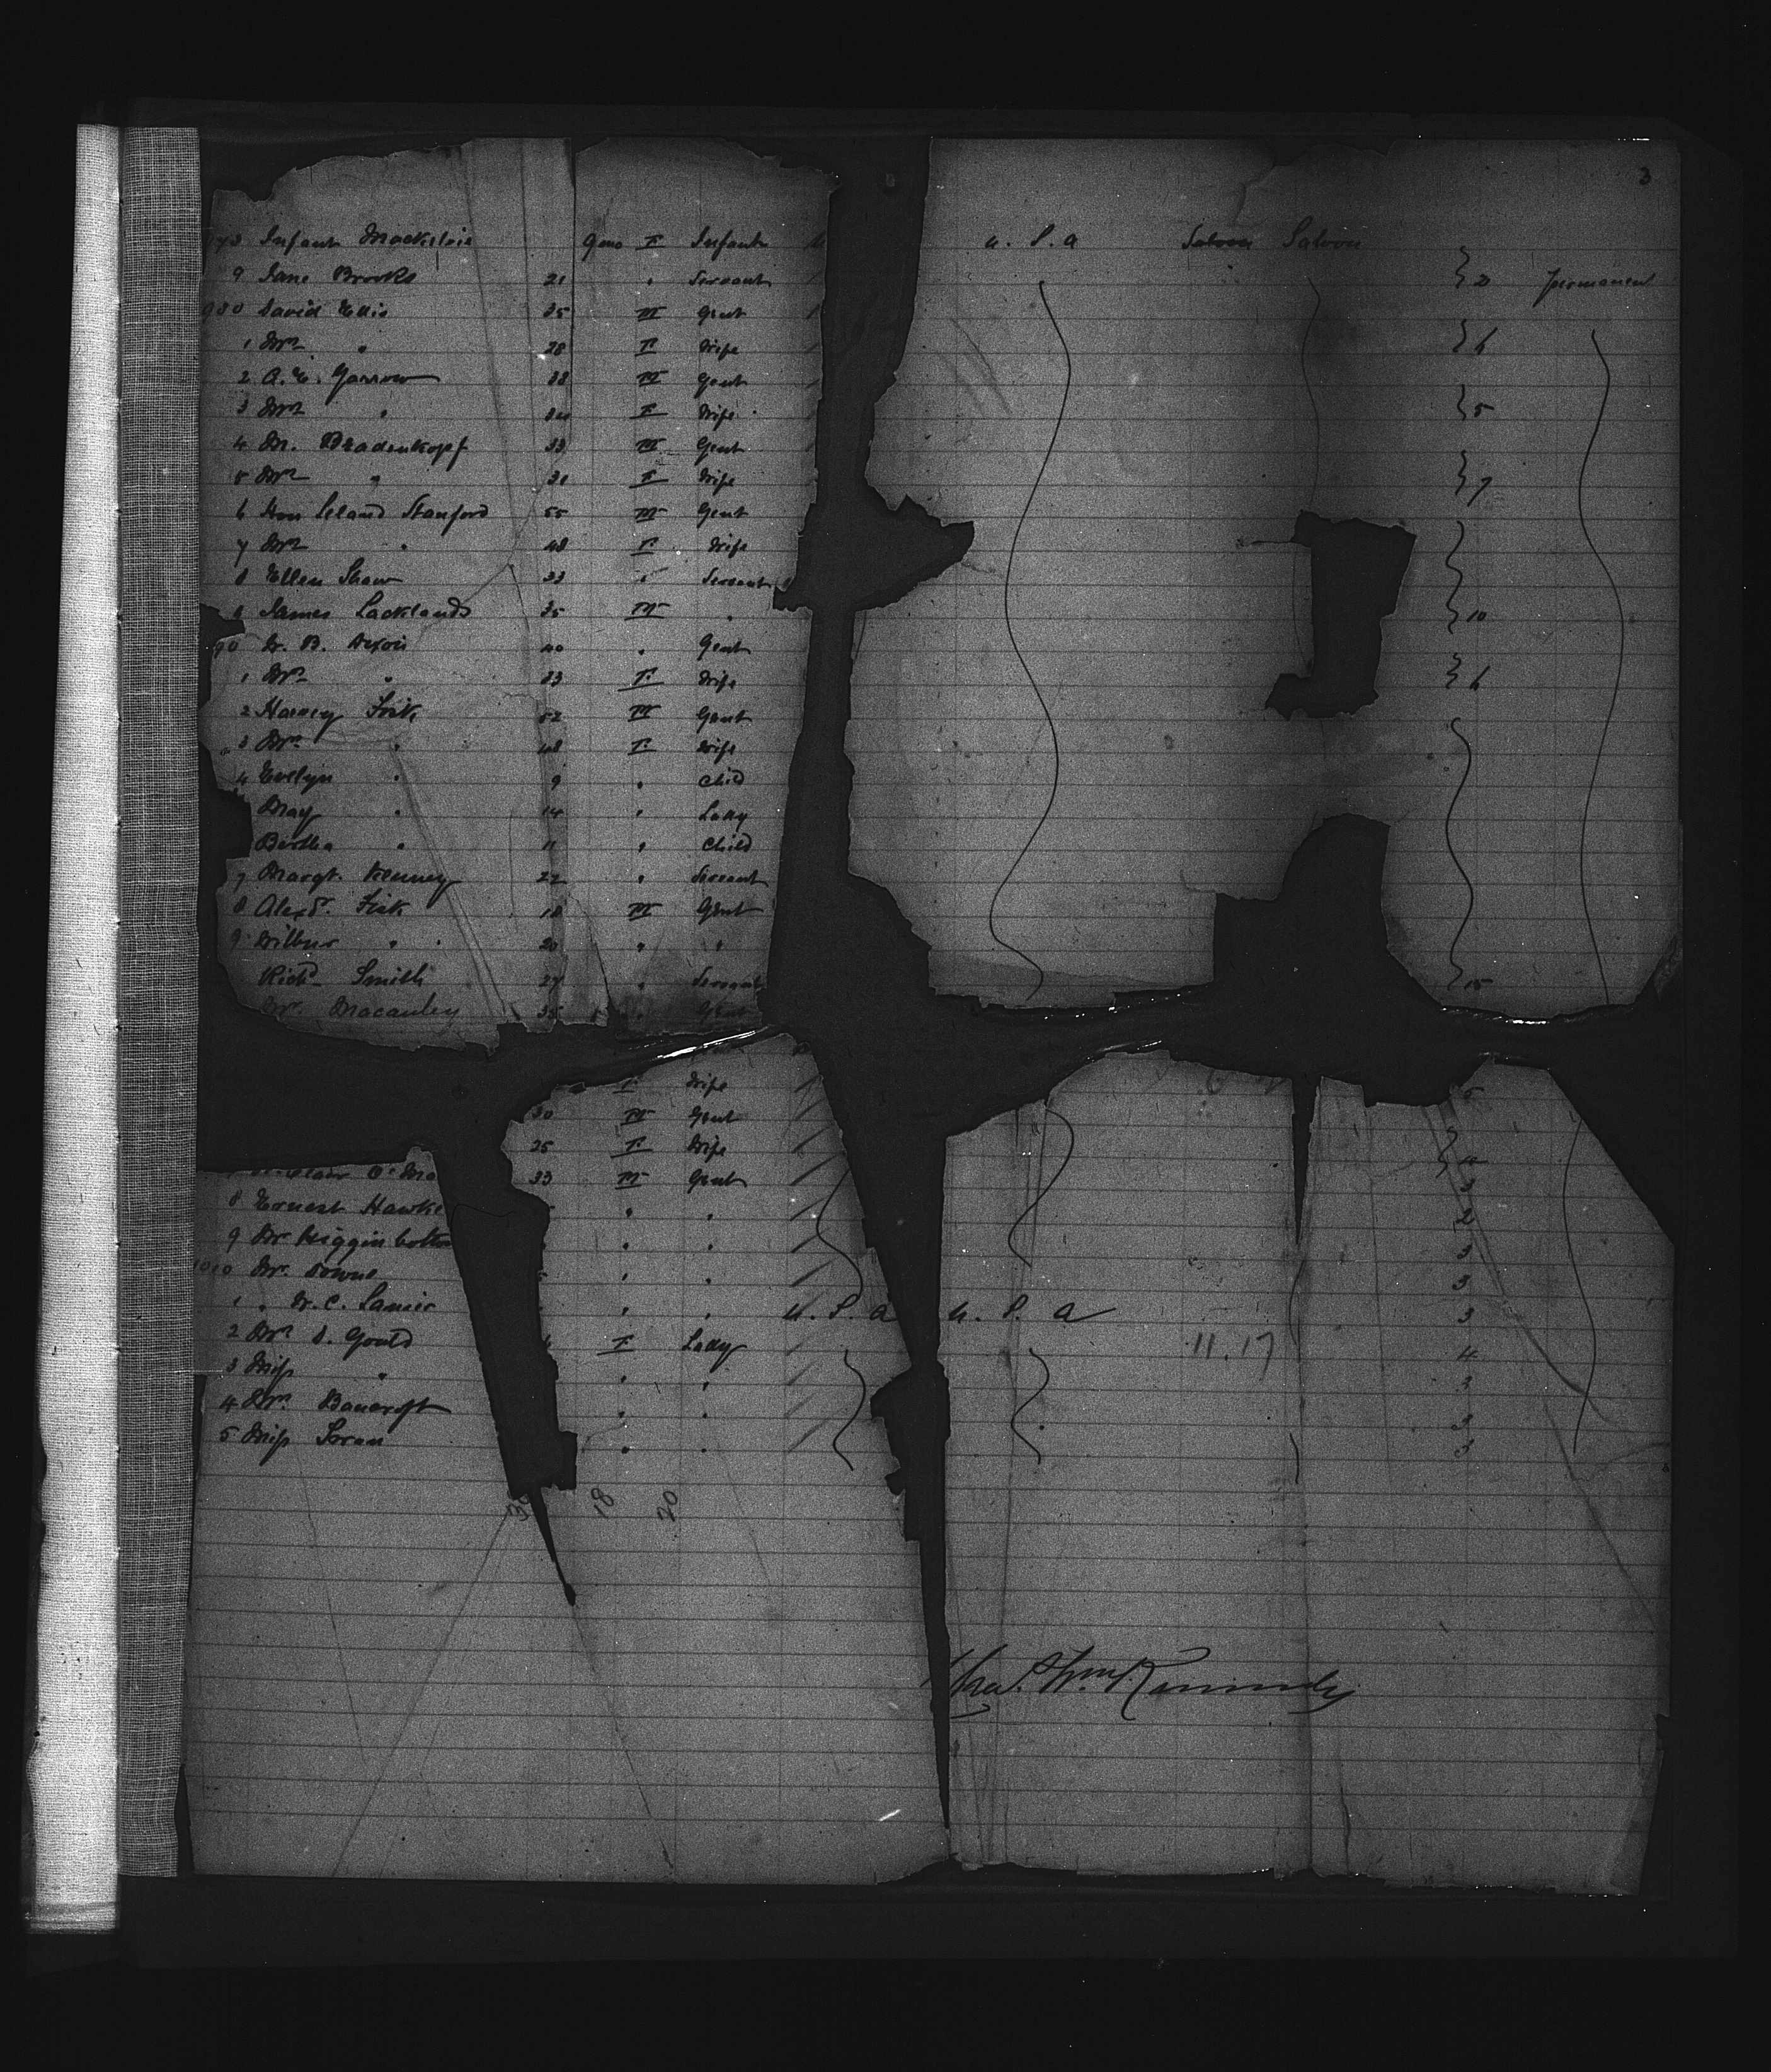 3
978 Infant 9mo F Infant U. S. A Saloon Saloon
9 Jane Brooks 21 " Servant } 2 permanent
980 David Ellis 35 M Gent
1 Mrs " 28 F Wife } 6
2 A. E. Garrow 38 M Gent
3 Mrs " F Wife } 5
4 Mr. Bradenkopf 33 M Gent
5 Mrs " 31 F Wife } 7
6 Hon Leland Stanford 55 M Gent
7 Mrs " 48 F Wife
8 Ellen Shaw 33 " Servant
James Lacklands 35 M " 10
90 W. B. Dixon 40 " Gent
1 Mrs " 33 F Wife } 6
2 Harvey Fisk 52 M Gent
3 Mrs " 48 F Wife
4 Evelyn " 9 " Child
May " 14 " Lady
Bertha " 11 " Child
7 Margt. Kenney 22 " Servant
8 Alexr. Fisk 18 M Gent
9 Wilbur " 20 " "
Richd Smith 27 " Servant 15
Mr. Macauley 35 " Gent
F Wife 5
30 M Gent
25 F Wife 4
33 M Gent 3
8 Ernest Hawke " " 2
9 Mr Higginbottom " " 3
1010 Mr. Downe " " 3
1 " W. C. Lanier " " U. S. A U. S. A 3
2 Mrs S. Gould F Lady 11.17 4
3 Miss " " "
4 Mrs. Bancroft " " 3
5 Miss " " 3
3 18 20
Wm. Kennedy